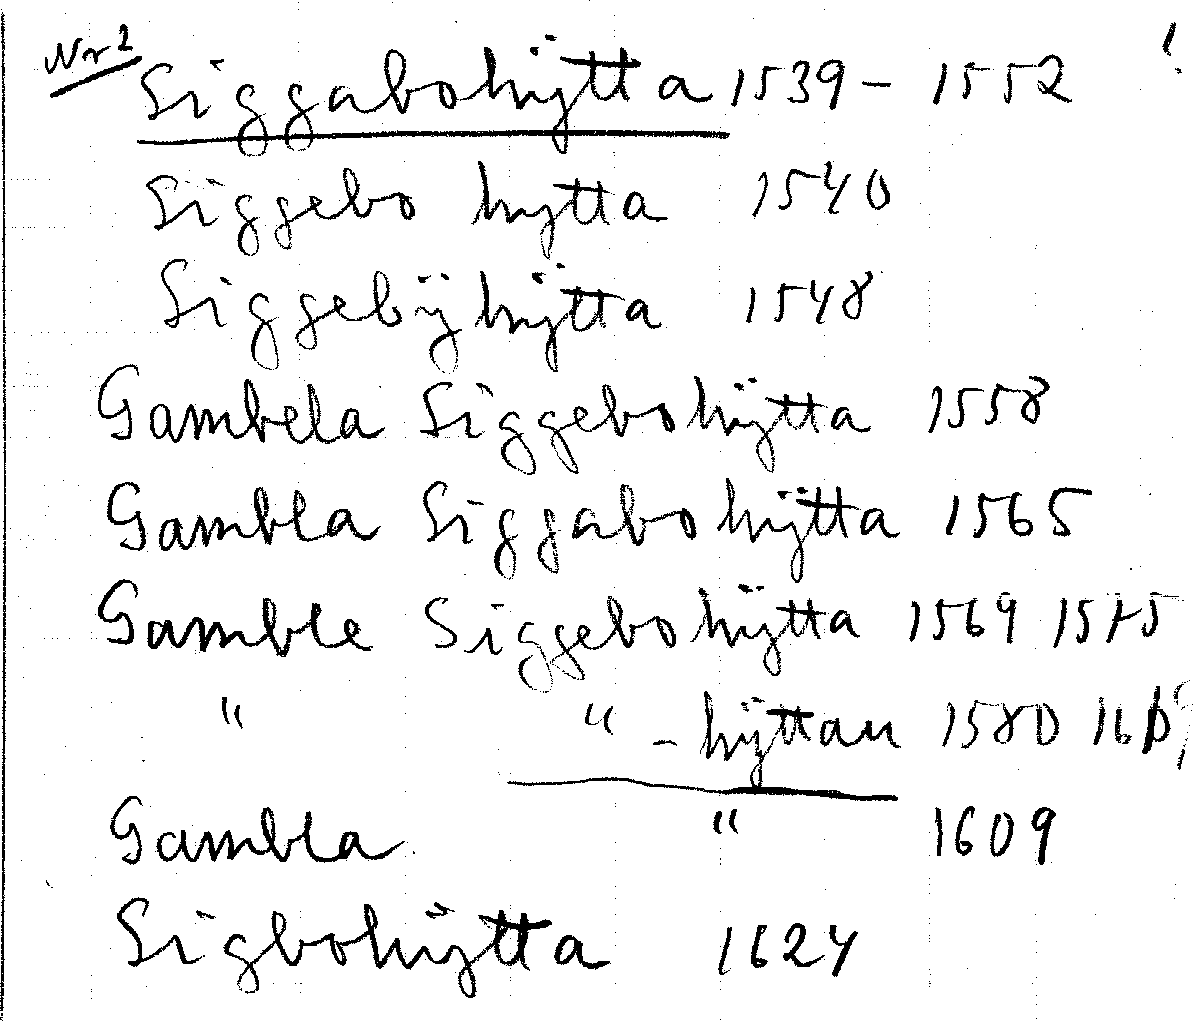 Nr 2 Siggabohÿtta 1539 – 1552
Siggebo hytta 1540
Siggebÿhÿtta 1548
Gambela Siggebohÿtta 1558
Gambla Siggabohÿtta 1565
Gamble Siggebohÿtta 1569 1575
" " - hÿttan 1580
Gambla " 1609
Sigbohÿtta 1624